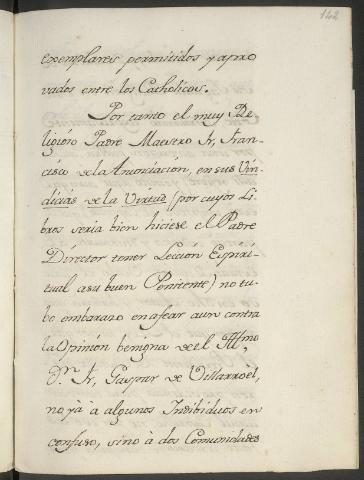 142
exemplares permitidos y apro
vados entre los Catholicos.
Por tanto el muy Re
ligioso Padre Maestro Fr, Fran
cisco de la Anunciación, en sus Vin
dicias de la Virtud (por cuyos Li
bros seria bien hiciese el Padre
Director tener Lección Espiri
tual a su buen Penitente) no tu
bo embarazo en afear aun contra
la Opinion benigna de el Ill.mo
D.n Fr, Gaspar de Villarroèl,
no yà à algunos Indibiduos en
confuso, sino à dos Comunidades